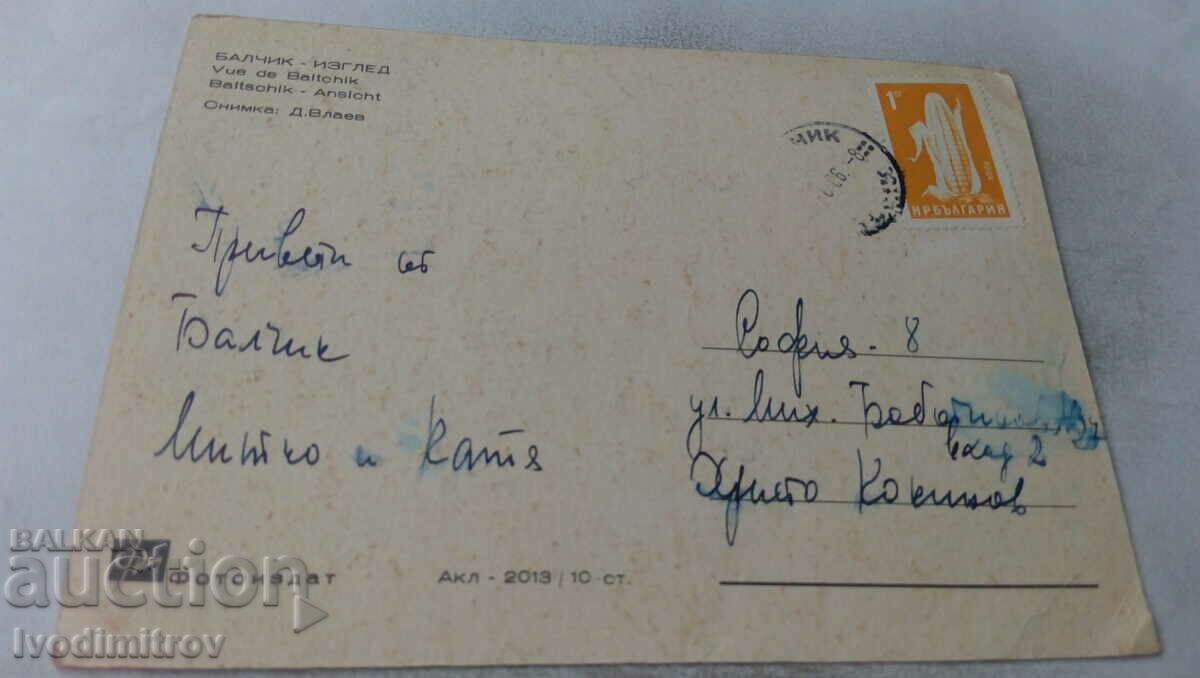 БАЛЧИК - ИЗГЛЕД
Vue de Baltchik
Baltschik - Ansicht
Снимка: Д.Влаев
1 ст
НРБЪЛГАРИЯ
ЧИК
Привети от
Балчик
Митко и Катя
София - 8
ул. Мих.
вход 2
Христо
Фотоиздат
Акл - 2013 / 10-ст.
BALKAN
auction
Ivodimitrov